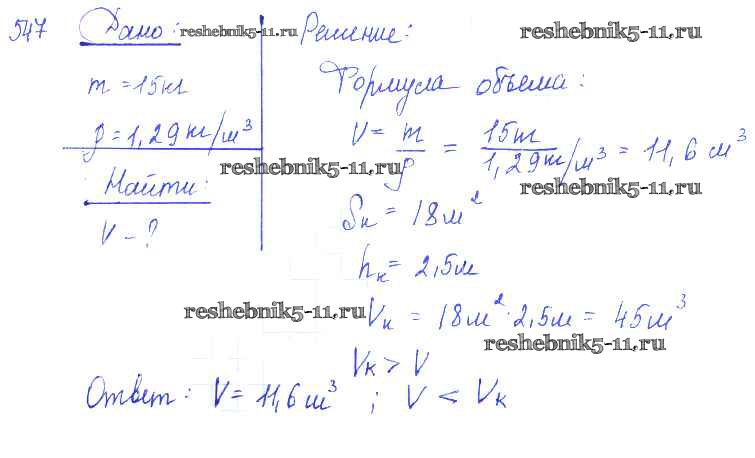 547 Дано: reshebnik5-11.ru Решение: reshebnik5-11.ru
m = 15кг
Формула объема:
ρ = 1,29 кг/м³
V = m/ρ = 15кг/1,29кг/м³ = 11,6 м³
reshebnik5-11.ru reshebnik5-11.ru
Найти:
V - ?
Sк = 18м²
hк = 2,5м
reshebnik5-11.ru Vк = 18м² · 2,5м = 45м³
reshebnik5-11.ru
Vк > V
Ответ: V = 11,6 м³ ; V < Vк